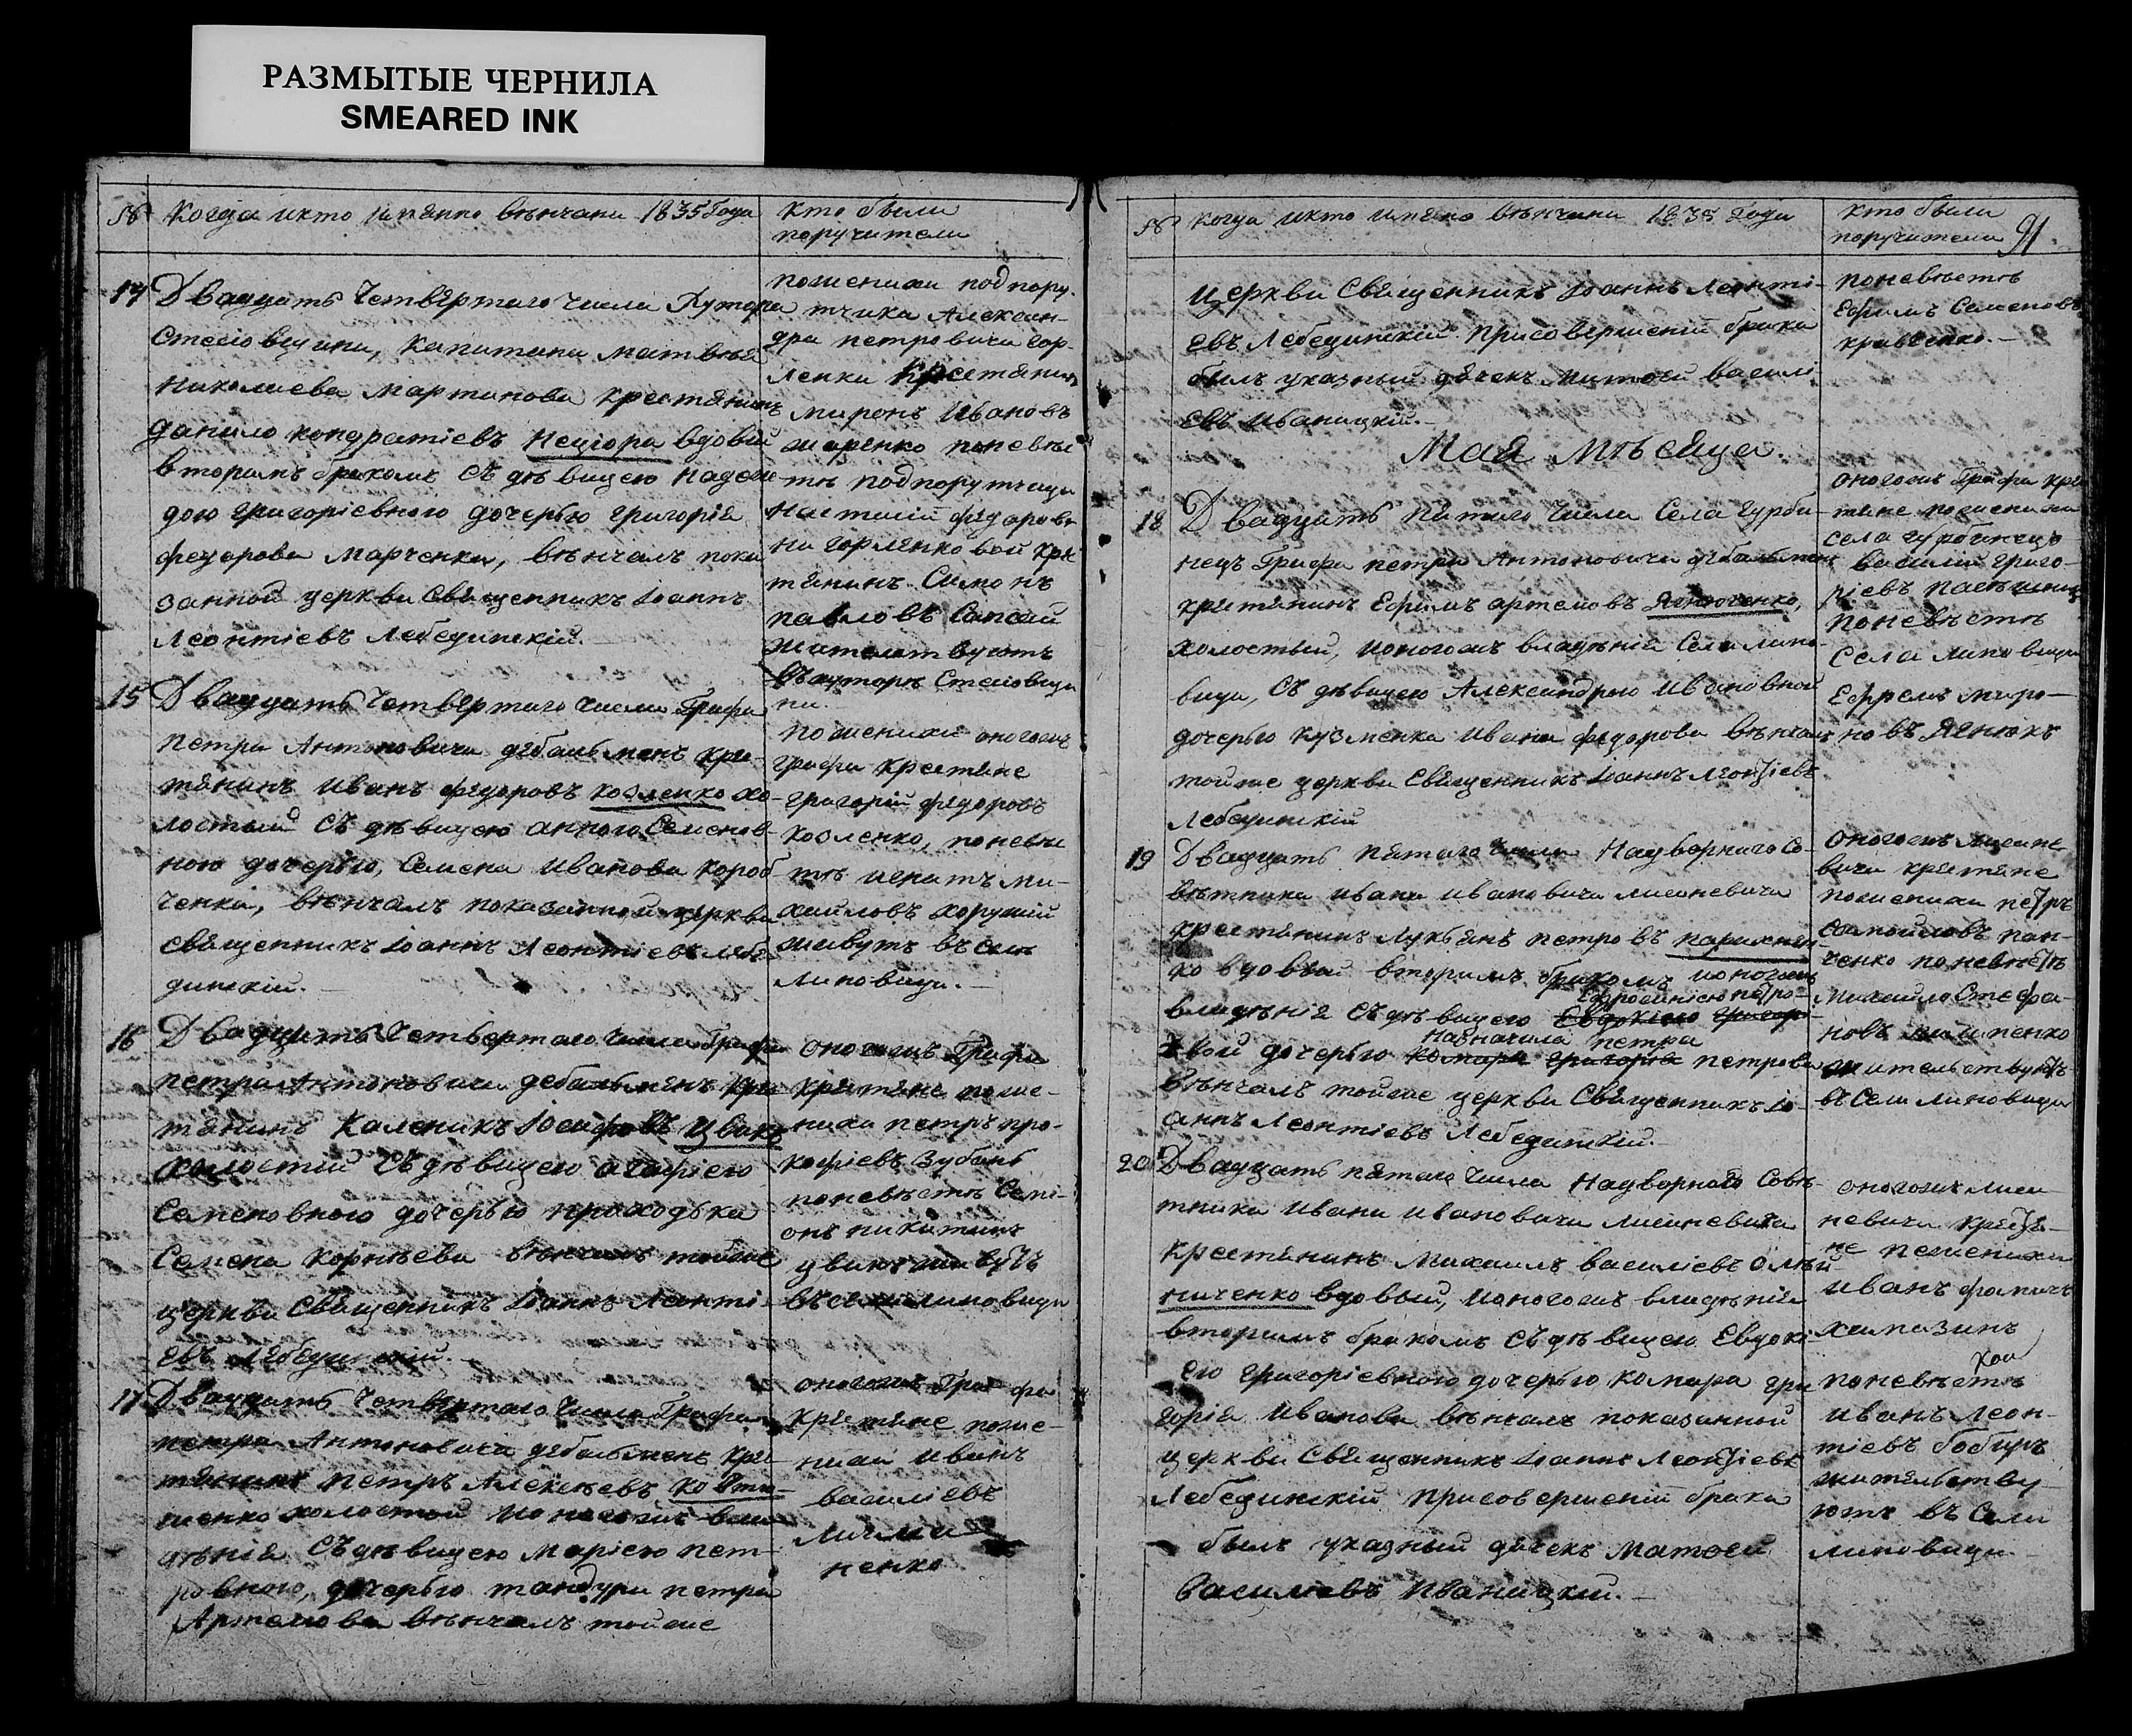 РАЗМЫТЫЕ ЧЕРНИЛА
SMEARED INK
№ Когда икто имянно вѣнчани 1835 Года
Кто были
поручители
14 Двадцать Четвертаго Числа Хутора
Стасовщини, капитана Матвѣя
Николаева Мартинова крестянинъ
данило кондратіевъ Нецюра вдовій
вторимъ бракомъ Съ дѣвицею Надеж
дою григоріевною дочерью григорія
федорова Марченка, вѣнчалъ пока
занной церкви Священникъ Іоаннъ
Леонтіевъ Лебединскій.
по женихи подпору-
тчика Алексан-
дра петровича гор-
ленки крестянинъ
миронъ Ивановъ
поневѣс
тѣ подпорутчицы
Настасій федоров
ни горленковой кре
тянинъ Симонъ
павловъ Сапсай
жителствуютъ
въхуторѣ Стасовщи
ни.
15 Двадцать Четвертаго Числа Графа
Петра Антоновича дебальменъ кре-
тянинъ Иванъ федоровъ козленко хо-
лостый Съ дѣвицею анною Семенов-
ною дочерью, Семена Иванова короб
ченка, вѣнчалъ показанной церкви
Священникъ Іоаннъ Леонтіевъ лебе
динскій.
по женихи оногожъ
графа крестяне
григорій федоровъ
козленко, поневѣс
тѣ игнатъ ми-
хайловъ хоружій
живутъ въ селѣ
липовици.
16 Двадцать Четвертаго Числа Графа
петра Антоновича дебальменъ кре
тянинъ Каленикъ Іосифовъ Цвикъ
холостій Съ дѣвицею агафіею
Семеновною дочерью проходька
Семена Корнѣева вѣнчалъ тойже
церкви Священникъ Іоаннъ Леонті
евъ Лебединскій.
оногожъ Графа
кретяне поже-
ниха петръ про-
кофіевъ Зубань
поневѣстѣ Семі-
онъ никитинъ
цвикъ живутъ
въ селѣ липовици
17 Двадцать Четвертаго Числа Графа
петра Антоновича дебальменъ кре
тянинъ петръ Алексѣевъ
шенко холостой ионогожъ вла
дѣнія Съ дѣвицею Маріею пет-
ровною, дочерью тандури петра
Артемова вѣнчалъ тойже
оногожъ Графа
кретяне поже-
ниха Иванъ
василіевъ
ненко
№ Когда икто имяно вѣнчани 1835 Года
кто были
поручители 91.
церкви Священникъ Іоаннъ Леонті-
евъ Лебединскій присовершеніи брака
былъ указный дячекъ Матфей василі
евъ Иваницкій.
поневѣстѣ
Ефимъ Семеновъ
кравченко.
Мая мѣсяца.
18 Двадцать пятаго Числа Села гурби-
нецъ Графа петра Антоновича дебальменъ
кретянинъ Ефимъ артемовъ Яснюченко,
холостый, ионогожъ владѣнія Села липо-
вици, Съ дѣвицею Александрою Ивановной
дочерью кузменка Ивана федорова вѣнчалъ
тойже церкви Священникъ Іоаннъ Леонтіевъ
Лебединскій
оногожъ Графа кре
тяне пожениха
села гурбинець
василій григо-
ріевъ
поневѣстѣ
Села липовици
Ефремъ миро-
новъ
19 Двадцать пятаго Числа Надворнаго Со-
вѣтника Ивана Ивановича лисаневича
крестянинъ Лукьянъ петровъ парахнен-
ко вдовый вторимъ бракомъ ионогожъ
Ефросиніею петро-
владѣнія Съ дѣвицею Евдокіею григорі
Назначила петра
вной дочерью комара григорія петрова
вѣнчалъ тойже церкви Священникъ Іо-
аннъ Леонтіевъ Лебединскій.
оногожъ лисане
вича кретяне
пожениха петръ
самойловъ пан-
ченко поневѣстѣ
михайло Стефа-
новъ
жительствуютъ
въ Селѣ липовици
20 Двадцать пятаго Числа Надворнаго Совѣ-
тника Ивана Ивановича лисаневича
крестянинъ Михаилъ василіевъ Олѣй
ниченко вдовый, ионогожъ владѣнія
вторимъ бракомъ Съ дѣвицею Евдокі-
ею григоріевною дочерью комара гри
горія Иванова вѣнчалъ показанной
церкви Священникъ Іоаннъ Леонтіевъ
Лебединскій присовершеніи брака
былъ указный дячекъ Матфей
Василіевъ Иваницкій.
оногожъ лиса
невича крестя-
не пожениха
Иванъ фомичъ
хамазинъ
поневѣстѣ
Иванъ Леон-
тіевъ бобиръ
жительству-
ютъ въ Селѣ
липовици.